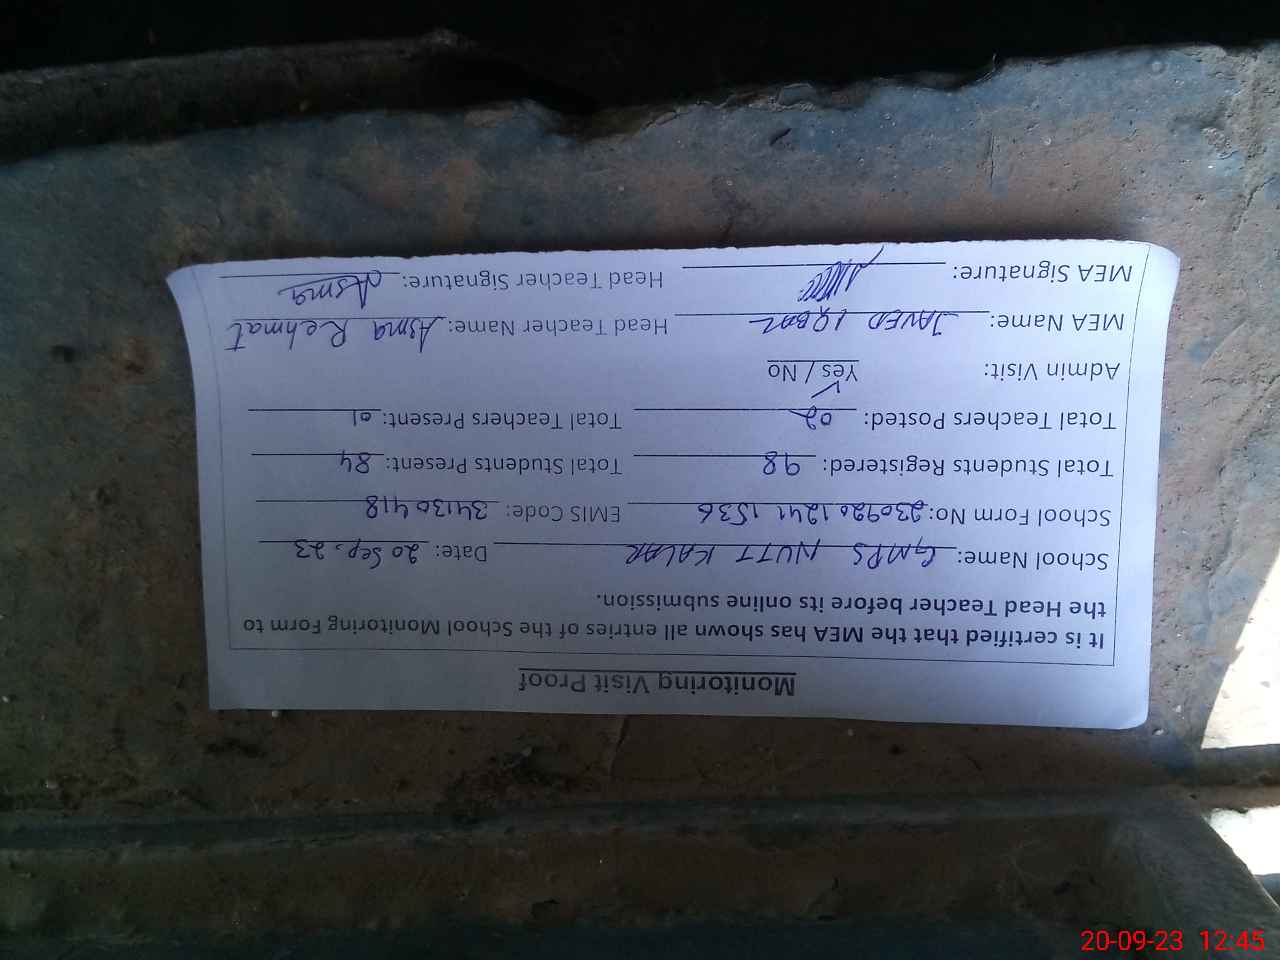 Monitoring Visit Proof
It is certified that the MEA has shown all entries of the School Monitoring Form to
the Head Teacher before its online submission.
School Name: GMPS NUTT KALAR Date: 20 Sep. 23
School Form No: 2309201241 1536 EMIS Code: 34130418
Total Students Registered: 98 Total Students Present: 84
Total Teachers Posted: 02 Total Teachers Present: 01
Admin Visit: Yes / No
MEA Name: JAVED IQBAL Head Teacher Name: Asma Rehmat
MEA Signature: Head Teacher Signature: Asma
20-09-23 12:45